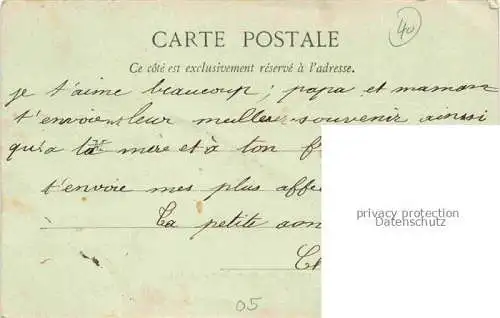 40
CARTE POSTALE
Ce côté est exclusivement réservé à l'adresse.
je t'aime beaucoup; papa et maman
t'envoient leur meilleur souvenir ainsi
qu'a ta mère et à ton f
t'envoie mes plus affe
La petite
privacy protection
Datenschutz
05